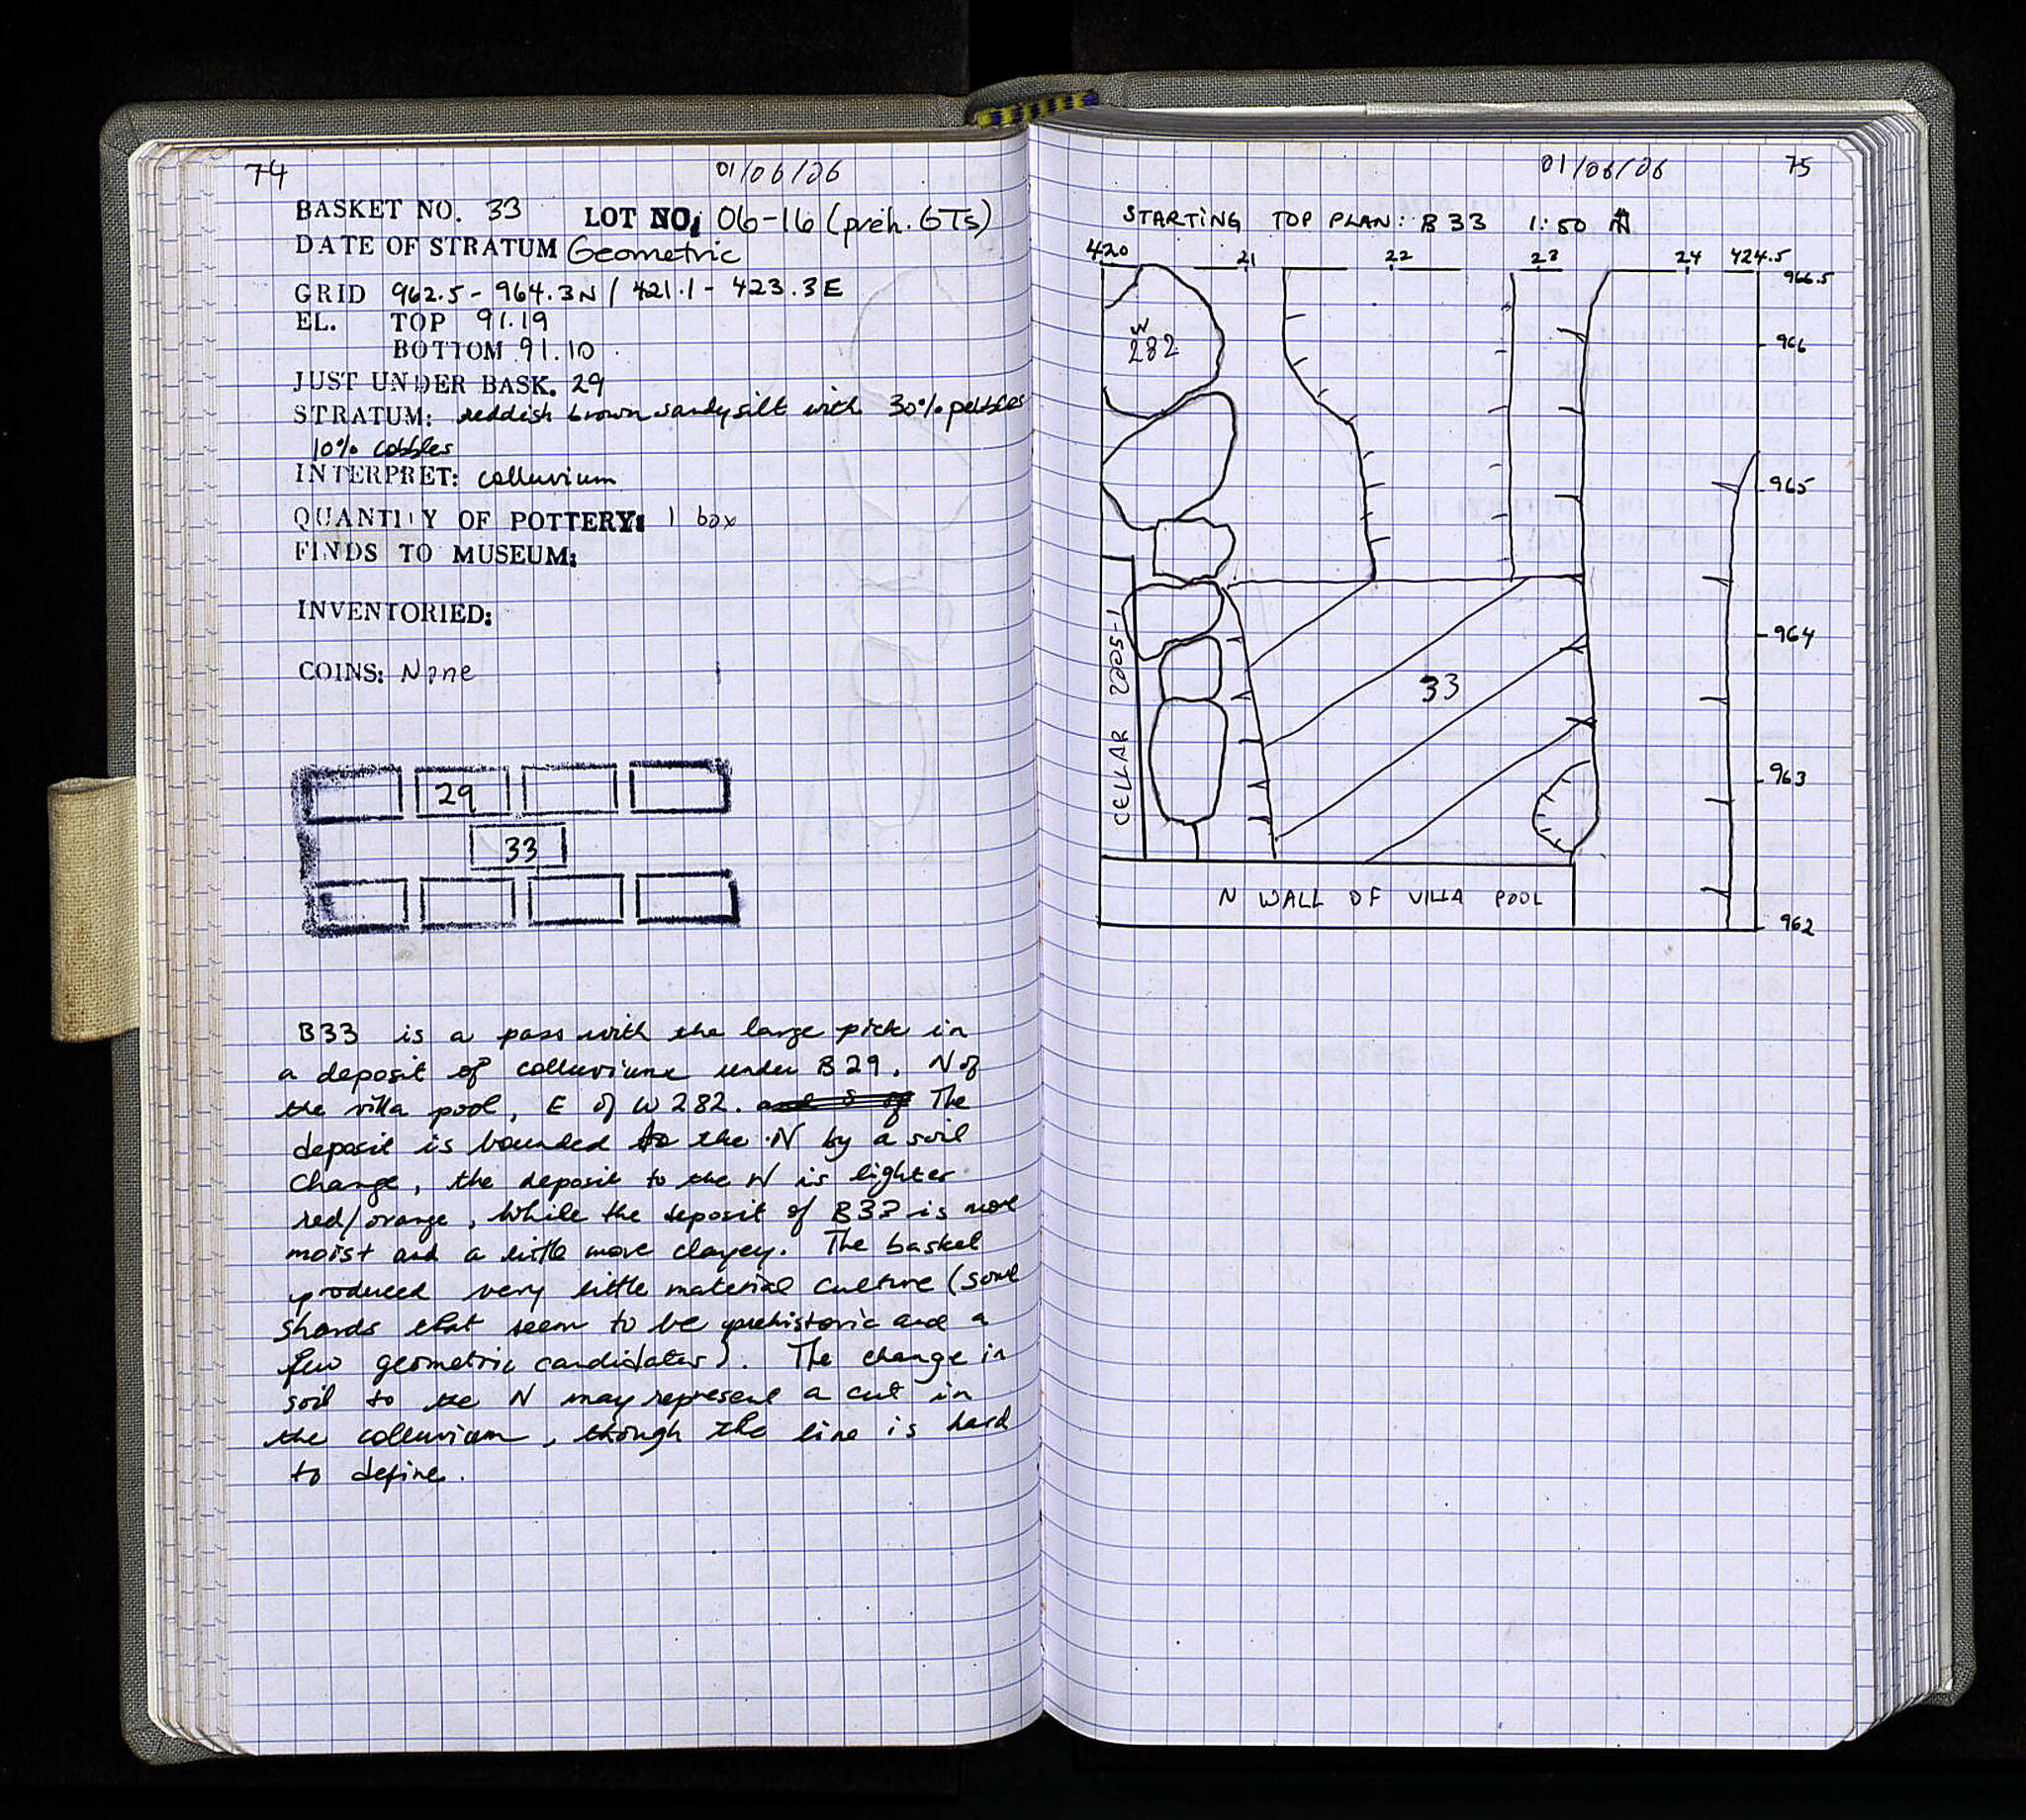 74
01/06/06
BASKET NO. 33 LOT NO: 06-16 (preh. GTs)
DATE OF STRATUM Geometric
GRID 962.5 - 964.3N / 421.1 - 423.3E
EL. TOP 91.19
BOTTOM 91.10
JUST UNDER BASK. 29
STRATUM: reddish brown sandy silt with 30% pebbles
10% cobbles
INTERPRET: colluvium
QUANTITY OF POTTERY: 1 box
FINDS TO MUSEUM:
INVENTORIED:
COINS: None
29
33
B33 is a pass with the large pick in
a deposit of colluvium under B29, N of
the villa pool, E of W282. The
deposit is bounded to the N by a soil
change, the deposit to the N is lighter
red/orange, while the deposit of B33 is more
moist and a little more clayey. The basket
produced very little material culture (some
sherds that seem to be prehistoric and a
few geometric candidates). The change in
soil to the N may represent a cut in
the colluvium, though the line is hard
to define.
01/06/06
75
STARTING TOP PLAN: B33 1:50 N
420 21 22 23 24 424.5
966.5
W
282
966
965
964
CELLAR 2005-1
33
963
N WALL OF VILLA POOL
962